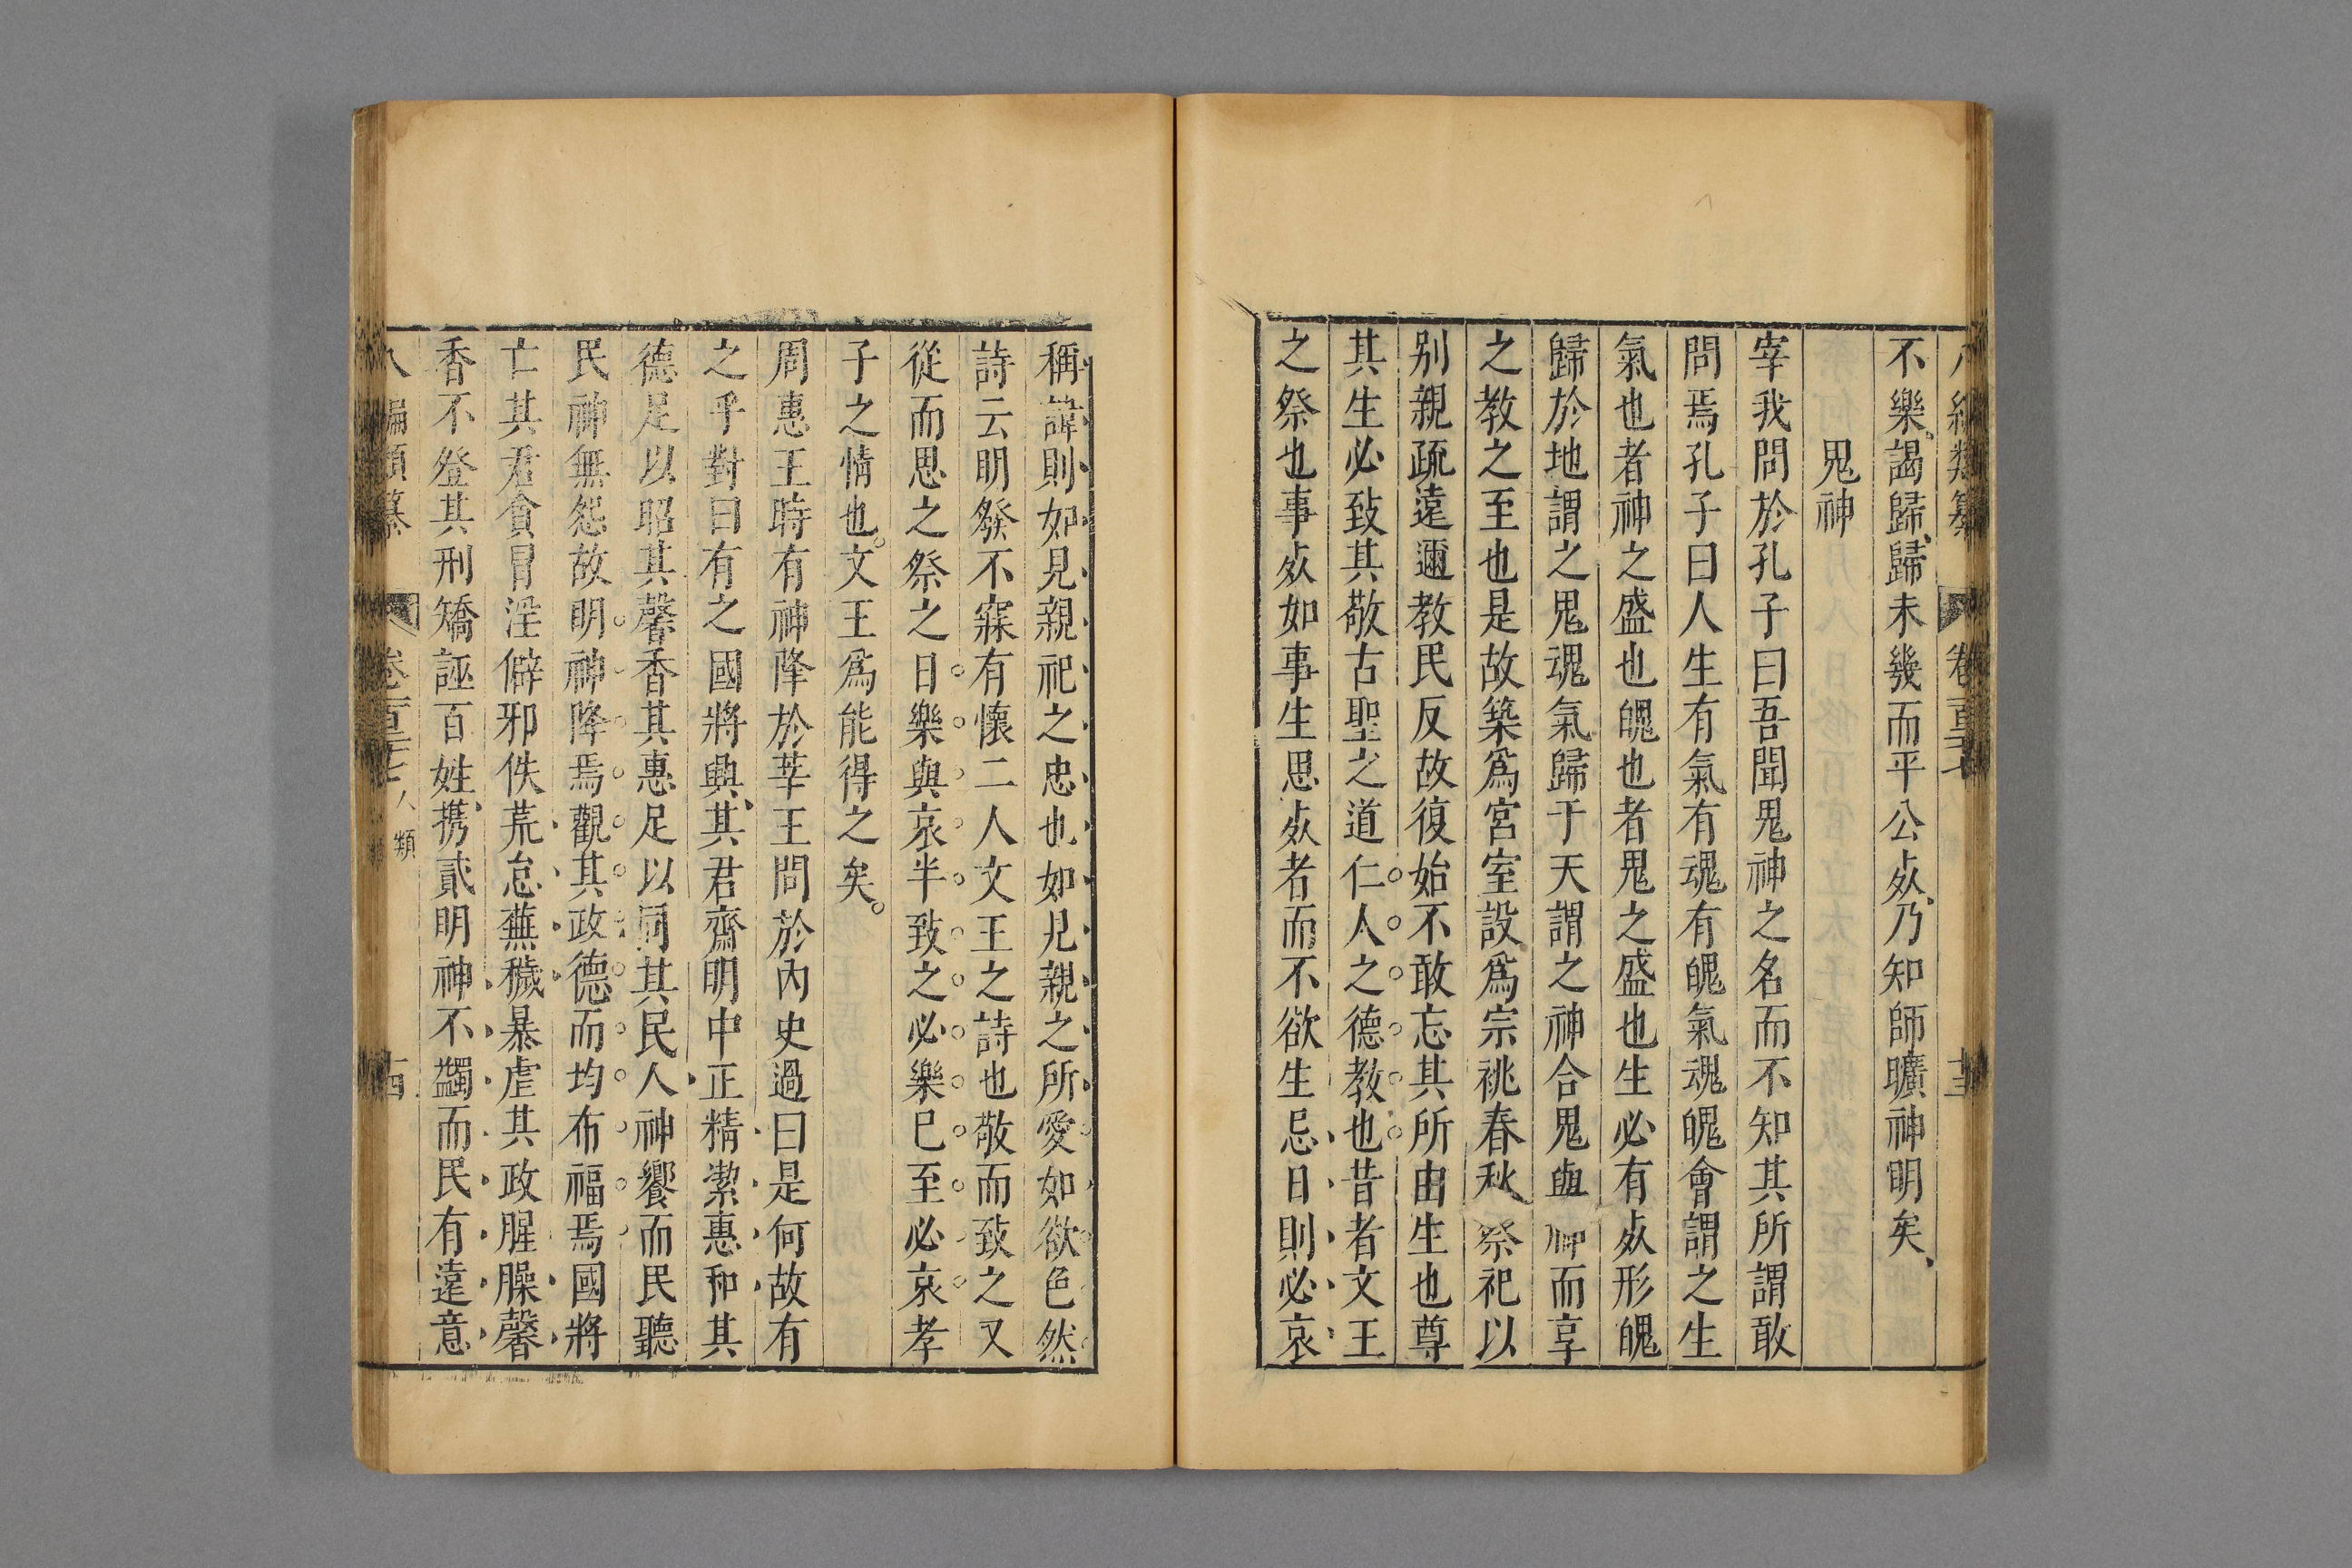 不樂謁歸歸未幾而平公𣦸乃知師曠神明矣
鬼神
宰我問於孔子曰吾聞鬼神之名而不知其所謂敢
問焉孔子曰人生有氣有魂有魄氣魂魄會謂之生
氣也者神之盛也魄也者鬼之盛也生必有𣦸形魄
歸於地謂之鬼魂氣歸于天謂之神合鬼與神而享
之教之至也是故築爲宮室設爲宗祧春秋祭祀以
别親疏遠邇教民反故復始不敢忘其所由生也尊
其生必致其敬古聖之道仁人之德教也昔者文王
之祭也事𣦸如事生思𣦸者而不欲生忌日則必哀
稱諱則如見親祀之忠也如見親之所愛如欲色然
詩云明發不寐有懷二人文王之詩也敬而致之又
從而思之祭之日樂與哀半致之必樂已至必哀孝
子之情也文王爲能得之矣
周惠王時有神降於莘王問於內史過曰是何故有
之乎對曰有之國將興其君齋明中正精潔惠和其
德足以昭其馨香其惠足以同其民人神饗而民聽
民神無怨故明神降焉觀其政德而均布福焉國將
亡其君貪冒淫僻邪佚荒怠蕪穢暴虐其政腥臊馨
香不登其刑矯誣百姓携貳明神不蠲而民有遠意
八編類纂 卷百 人類 十四